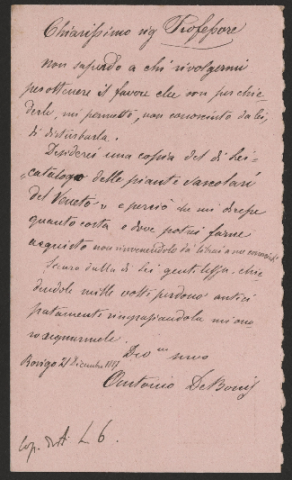 Chiarissimo sig Professore
Non sapendo a chi rivolgermi
per ottenere il favore che son per chie
derle, mi permetto, non conosciuto da lei,
di disturbarla.
Desidererei una copia del di Lei
catalogo delle piante vascolari
del Veneto e perciò che mi dicesse
quanto costa e dove potrei farne
acquisto non rinvenendolo da librai
Sicuro della di Lei gentilezza chie
dendole mille volte perdono antici
patamente ringraziandola mi ono
ro segnarmele.
Dev mo suo
Rovigo 21 Dicembre
Antonio De Bonis
L 6.